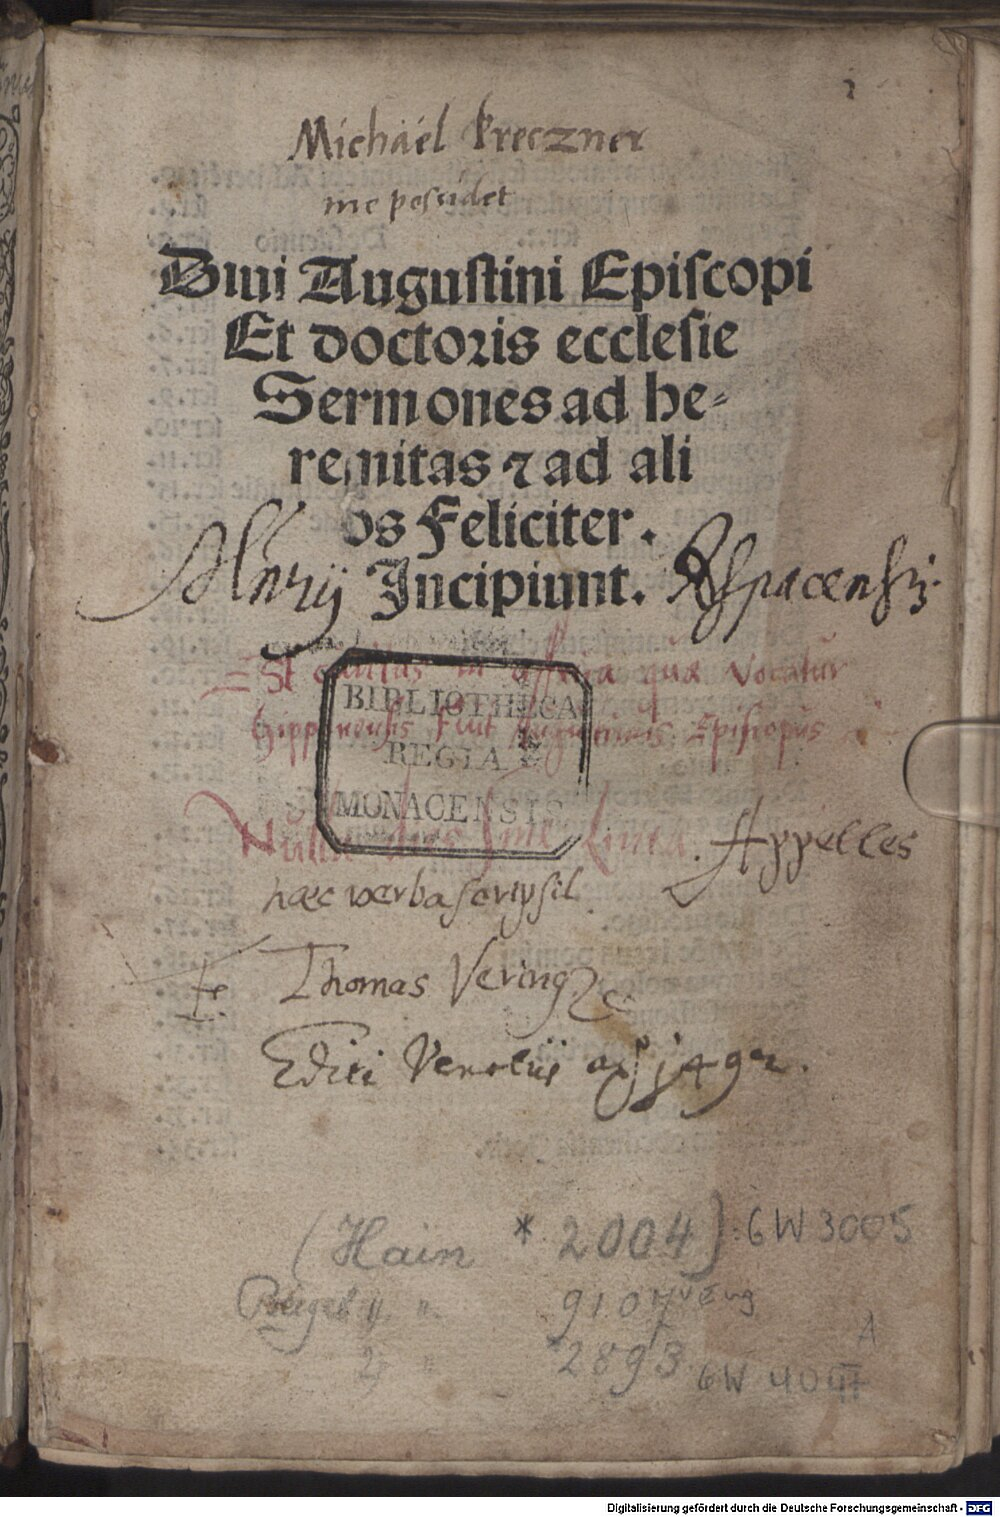 Michael Kreczner
me possidet
Diui Augustini Episcopi
Et doctoris ecclesie
Sermones ad he-
remitas ⁊ ad ali
os Feliciter.
Incipiunt.
Est civitas in affrica quæ vocatur
Hipponensis fuit Augustinus Episcopus
BIBLIOTHECA
REGIA
MONACENSIS
Nulla dies sine Linea. Appelles
hæc verba scripsit
Thomas Vering
Editi Venetiis
(Hain * 2004) : GW 3005
9107
2893 GW
A
Digitalisierung gefördert durch die Deutsche Forschungsgemeinschaft - DFG